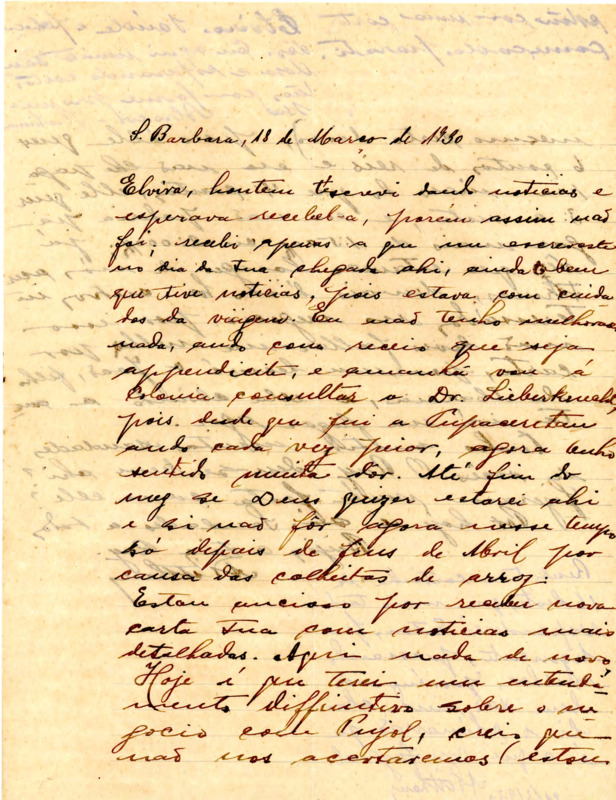 S. Barbara, 18 de Março de 1930
Elvira, hontem t'escrevi dando noticias e
esperava recebel-a, porém assim não
foi, recebi apenas a que me escreveste
no dia da tua chegada ahi, ainda bem
que tive noticias, pois estava com cuida
dos da viagem. Eu não tenho melhorado
nada, ando com receio que seja
appendicite, e amanhã vou á
Colonia consultar o Dr. Lieberknecht
pois desde que fui a Tupaceretan
ando cada vez peior, agora tenho
sentido muita dôr. Até fim do
mez se Deus quizer estarei ahi
e si não fôr agora nesse tempo
só depois de fins de Abril por
causa das colheitas de arroz.
Estou ancioso por receber nova
carta tua com noticias mais
detalhadas. Aqui nada de novo,
Hoje é que terei um entendi
mento diffinitivo sobre o ne
gocio com Pujol, creio que
não nos acertaremos (estou